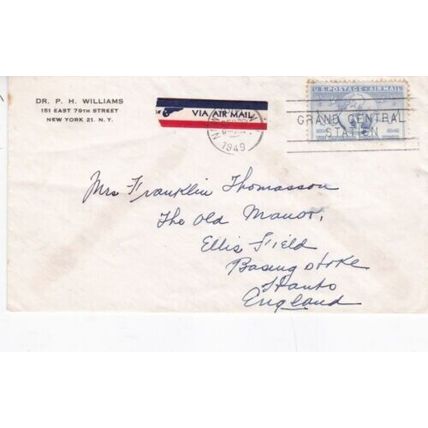 DR. P. H. WILLIAMS
151 EAST 79TH STREET
NEW YORK 21. N. Y.
VIA AIR MAIL
1949
U.S. POSTAGE AIR MAIL
GRAND CENTRAL
STATION
Mrs Franklin Thomasson
The Old Manor,
Ellis Field
Basingstoke
Hants
England